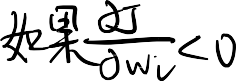 如果∂J/∂wᵢ<0